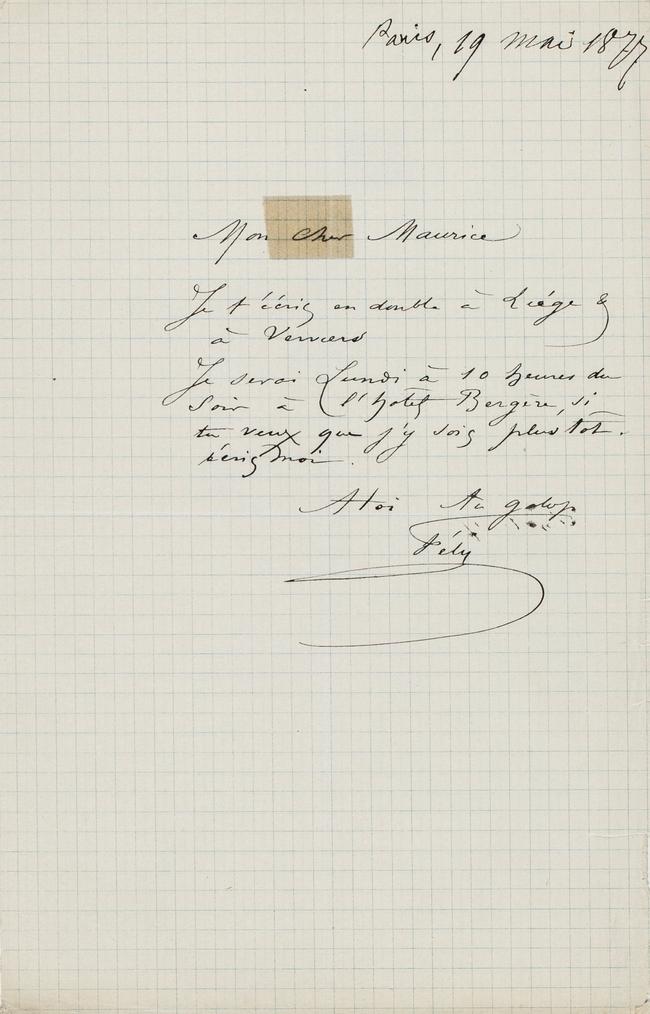 Paris, 19 mai 1877
Mon cher Maurice
Je t'écris en double à Liége &
à Verviers
Je serai Lundi à 10 heures du
Soir à l'hotel Bergère, si
tu veux que j'y sois plus tôt.
écris moi.
A toi Au galop
Fély